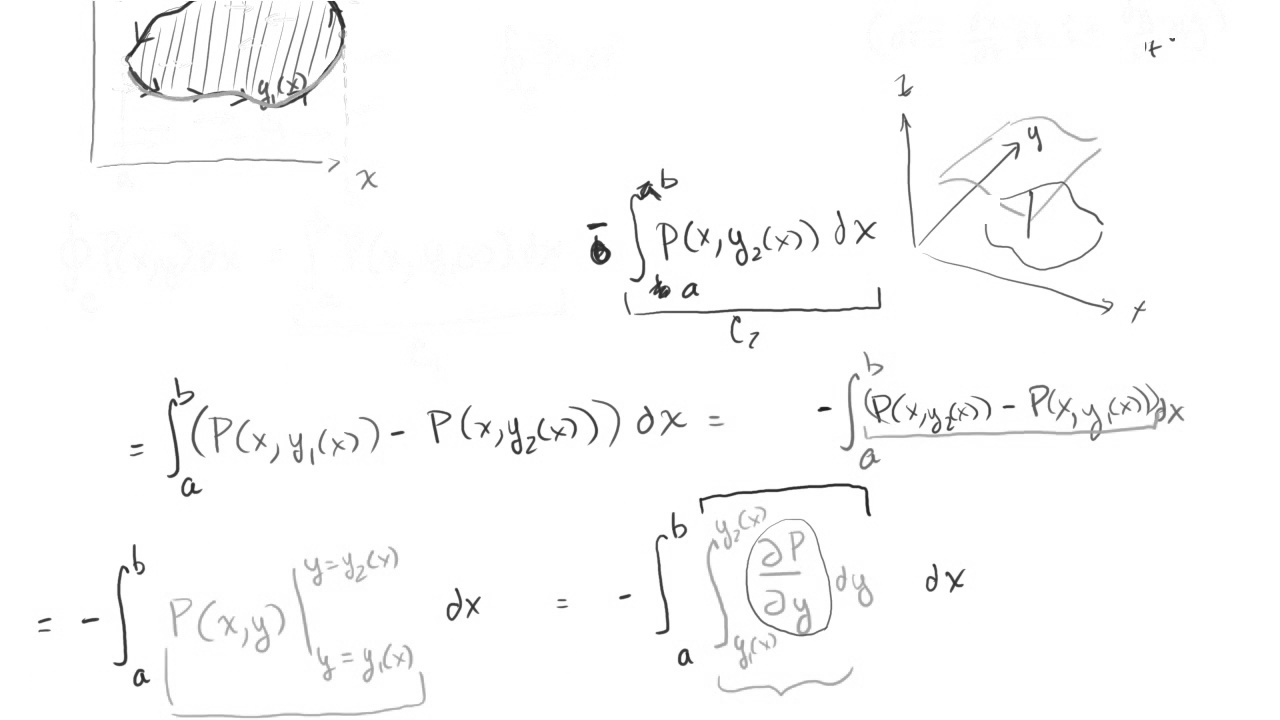 y₁(x)
x
z
y
x
- ∫ₐᵇ P(x, y₂(x)) dx
C₂
= ∫ₐᵇ (P(x, y₁(x)) - P(x, y₂(x))) dx = - ∫ₐᵇ (P(x, y₂(x)) - P(x, y₁(x))) dx
= - ∫ₐᵇ P(x,y) |_{y = y₁(x)}^{y = y₂(x)} dx = - ∫ₐᵇ ∫_{y₁(x)}^{y₂(x)} ∂P/∂y dy dx